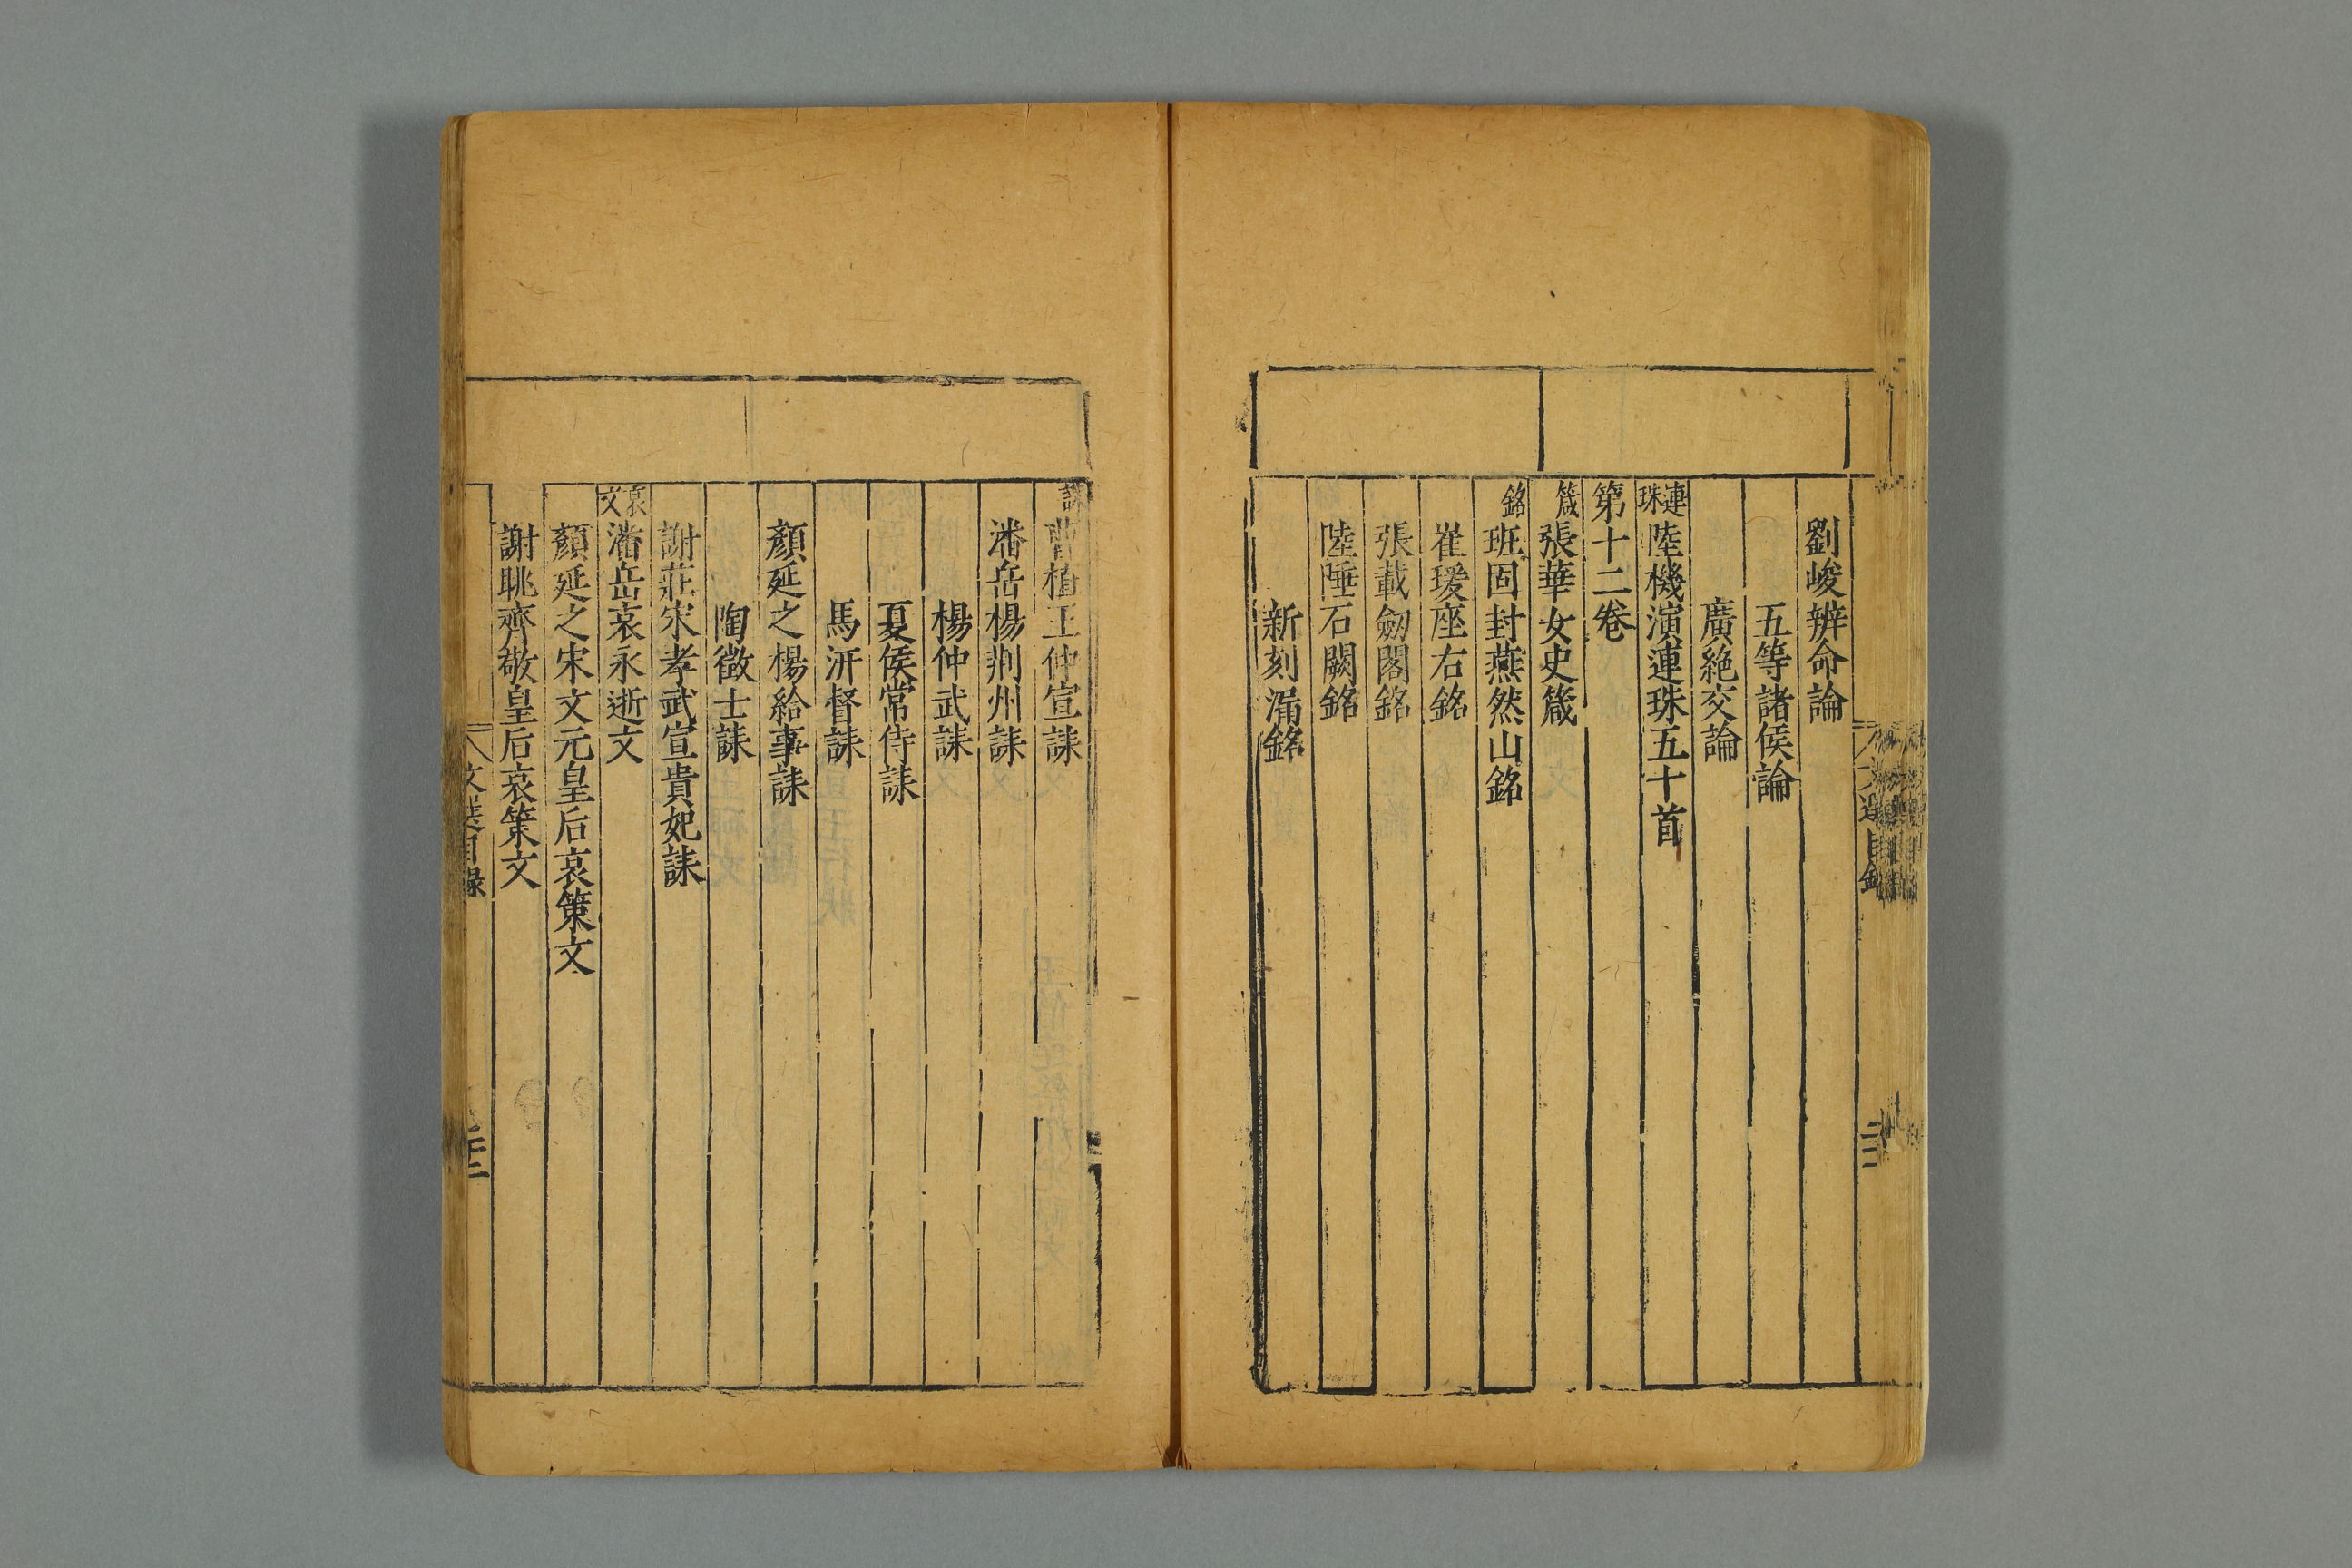 劉峻辨命論
五等諸侯論
廣絶交論
連珠 陸機演連珠五十首
第十二卷
箴 張華女史箴
銘 班固封燕然山銘
崔瑗座右銘
張載劒閣銘
陸倕石闕銘
新刻漏銘
誄 曹植王仲宣誄
潘岳楊荆州誄
楊仲武誄
夏侯常侍誄
馬汧督誄
顏延之楊給事誄
陶徵士誄
謝莊宋孝武宣貴妃誄
哀文 潘岳哀永逝文
顏延之宋文元皇后哀策文
謝眺齊敬皇后哀策文
文選目錄